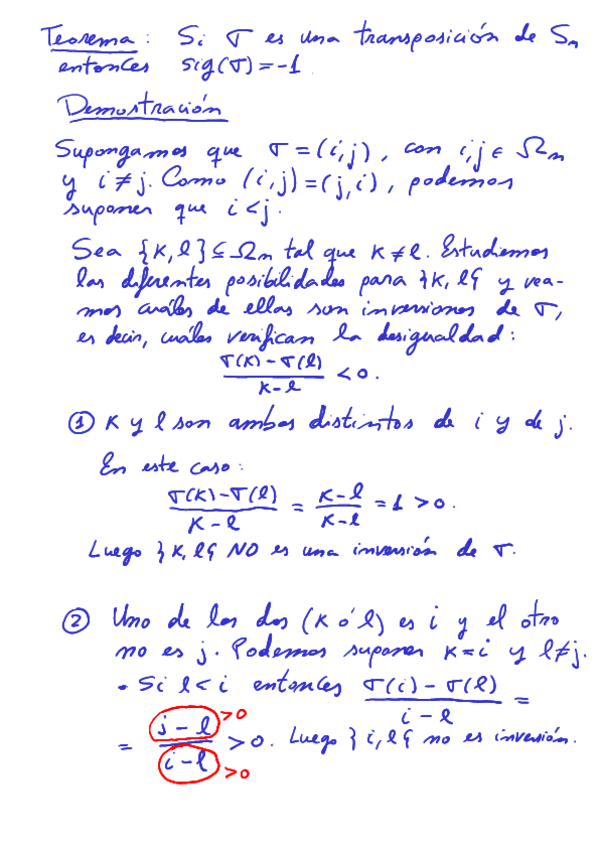 Teorema: Si σ es una transposición de Sn
entonces sig(σ)=-1
Demostración
Supongamos que σ=(i,j), con i,j ∈ Ωn
y i≠j. Como (i,j)=(j,i), podemos
suponer que i<j.
Sea {k,l}⊆Ωn tal que k≠l. Estudiemos
las diferentes posibilidades para {k,l} y vea-
mos cuáles de ellas son inversiones de σ,
es decir, cuáles verifican la desigualdad:
(σ(k)-σ(l))/(k-l) < 0.
① k y l son ambos distintos de i y de j.
En este caso:
(σ(k)-σ(l))/(k-l) = (k-l)/(k-l) = 1 > 0.
Luego {k,l} NO es una inversión de σ.
② Uno de los dos (k ó l) es i y el otro
no es j. Podemos suponer k=i y l≠j.
• Si l<i entonces (σ(i)-σ(l))/(i-l) =
= (j-l)/(i-l) > 0. Luego {i,l} no es inversión.
>0
>0